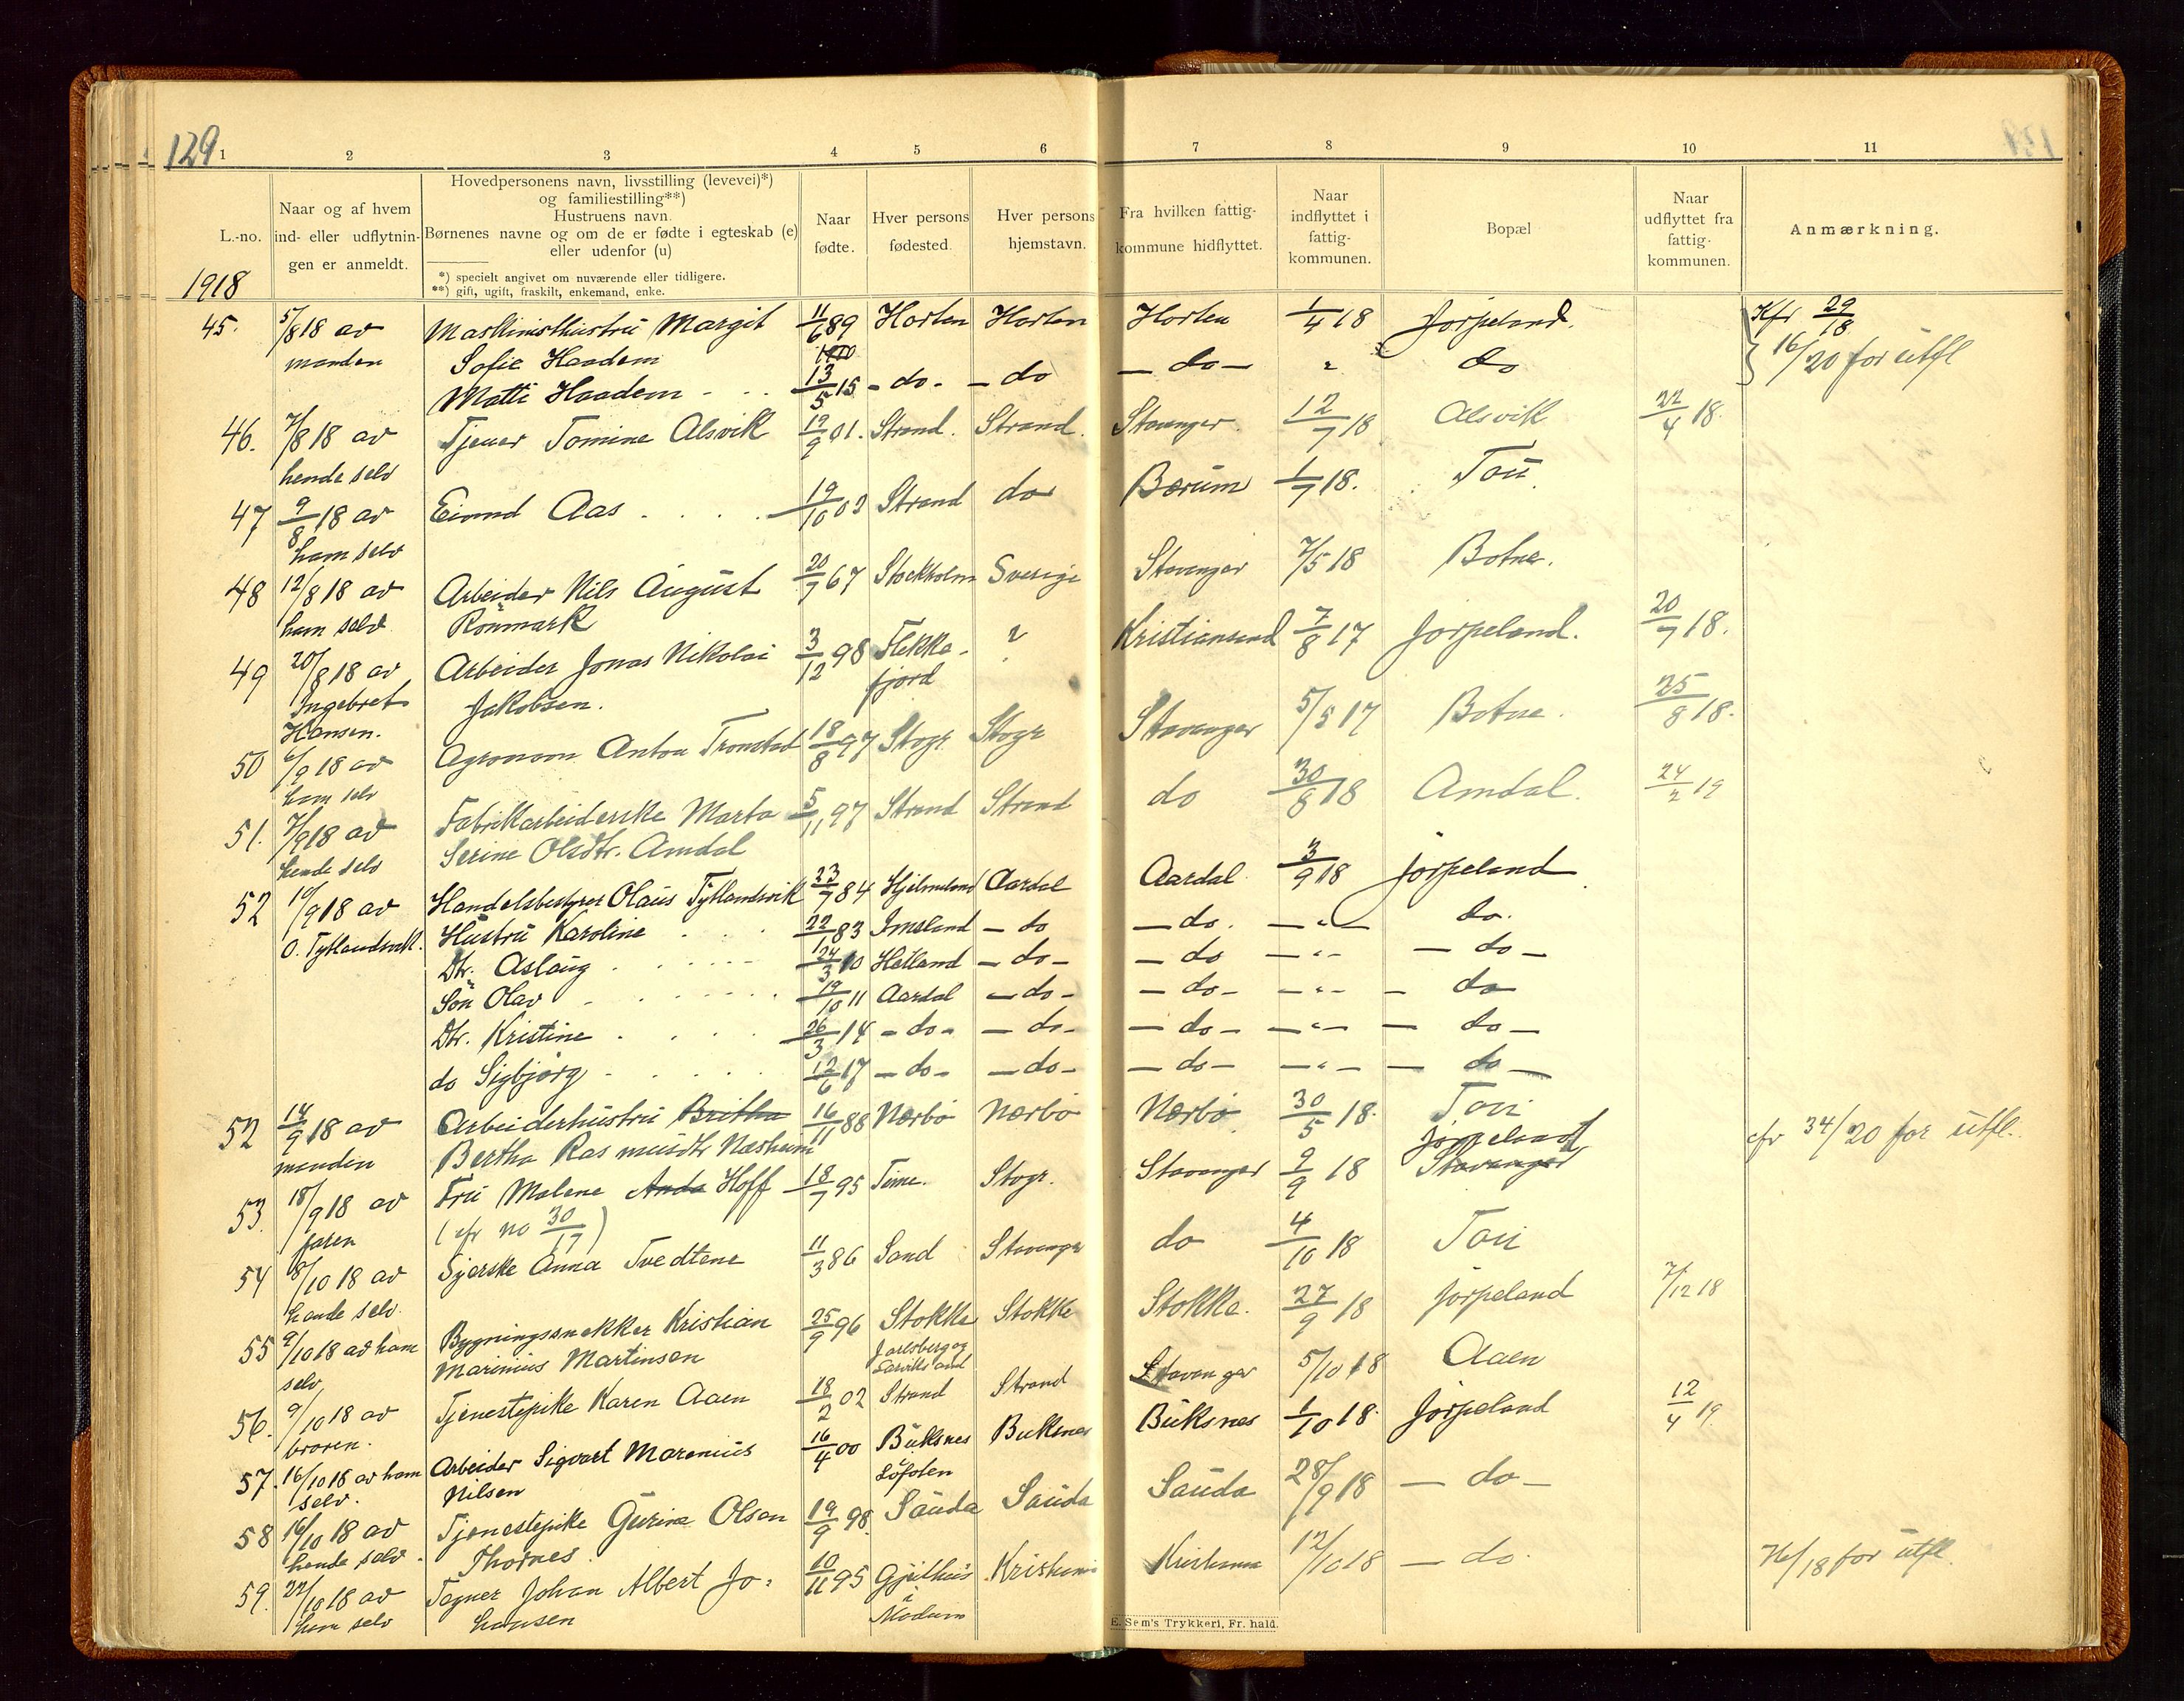 129
1 2 3 4 5 6 7 8 9 10 11
L.-no.
Naar og af hvem
ind- eller udflytnin-
gen er anmeldt.
Hovedpersonens navn, livsstilling (levevei)*)
og familiestilling**)
Hustruens navn.
Børnenes navne og om de er fødte i egteskab (e)
eller udenfor (u)
*) specielt angivet om nuværende eller tidligere.
**) gift, ugift, fraskilt, enkemand, enke.
Naar
fødte.
Hver persons
fødested.
Hver persons
hjemstavn.
Fra hvilken fattig-
kommune hidflyttet.
Naar
indflyttet i
fattig-
kommunen.
Bopæl
Naar
udflyttet fra
fattig-
kommunen.
Anmærkning.
1918
45. 5/8 18 av Maskinisthustru Margit 11/6 89 Horten Horten Horten 1/4 18 Jørpeland. Kfr 29/18
manden Sofie Haadem — do — " do 16/20 for utfl
Matti Haadem - - . 13/5 15 - do - — do
46. 7/8 18 av Tjener Tomine Alsvik 19/9 01. Strand. Strand. Stavanger 12/7 18 Alsvik 22/4 18.
hende selv
47 9/8 18 av Eivind Aas . . . . 19/10 02 Strand do Bærum 1/7 18. Tou
ham selv
48 12/8 18 av Arbeider Nils August 20/7 67 Stockholm Sverige Stavanger 7/5 18 Botne.
ham selv Rönmark
49 20/8 18 av Arbeider Jonas Nikolai 3/12 98 Flekke- ? Kristiansand 7/8 17 Jørpeland. 20/7 18.
Ingebret Jakobsen. fjord
Hansen.
50 6/9 18 av Agronom Anton Tronstad 18/8 97 Stvgr Stvgr Stavanger 5/5 17 Botne. 25/8 18.
ham selv
51. 7/9 18 av Fabrikarbeiderske Marta 5/11 97 Strand Strand do 30/8 18 Amdal. 24/2 19
hende selv Serine Olsdtr. Amdal
52 10/9 18 av Handelsbestyrer Olaus Tytlandsvik 23/7 84 Hjelmeland Aardal Aardal 3/9 18 Jørpeland
O. Tytlandsvik. Hustru Karoline . . . 22/1 83 Imsland — do — do. — " — do.
Dtr. Aslaug . . . . . 24/3 10 Hetland — do — — do — " - — do —
Søn Olav . . . . . 19/10 11 Aardal — do - — do - — " - — do
Dtr. Kristine . . . . 26/3 14 - do - — do - — do — — " — — do —
do Sigbjørg . . . . . 12/6 17 — do - — do - — do — — " — — do —
52 14/9 18 av Arbeiderhustru Britha 16/11 88 Nærbø Nærbø Nærbø 30/5 18. Tou cfr 34/20 for utfl.
manden Bertha Rasmusdtr Næsheim
53. 18/9 18 av Fru Malene Anda Hoff 18/7 95 Time. Stvgr. Stavanger 9/9 18 Jørpeland Stavanger
faren (cfr no 30/17)
54 8/10 18 av Syerske Anna Tvedtene 11/3 86 Sand Stavanger do 4/10 18 Tou
hende selv.
55 9/10 18 av ham Bygningssnekker Kristian 25/9 96 Stokke Stokke Stokke. 27/9 18 Jørpeland 7/12 18
selv Marinius Martinsen Jarlsberg og
Larviks amt
56. 9/10 18 av Tjenestepike Karen Aaen 18/2 02 Strand Strand Stavanger 5/10 18 Aaen
broren.
57. 16/10 18 av ham Arbeider Sigvart Marenius 16/4 00 Buksnes Buksnes Buksnes 1/10 18. Jørpeland 12/4 19
selv. Nilsen Lofoten
58 16/10 18 av Tjenestepike Gurine Olsen 19/9 98 Sauda Sauda Sauda 28/9 18 — do —
hende selv. Thornes.
59. 22/10 18 av Tegner Johan Albert Jo- 10/11 95 Gjeithus Kristiania Kristiania 12/10 18 — do. 76/18 for utfl.
ham selv hansen i
Modum
E. Sem's Trykkeri, Fr. hald.